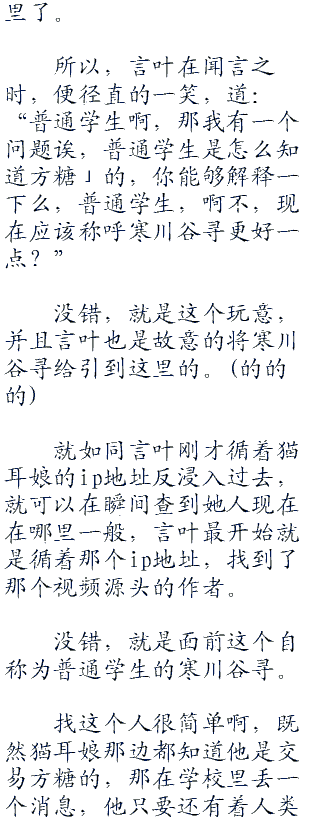 里了。
所以，言叶在闻言之
时，便径直的一笑，道：
“普通学生啊，那我有一个
问题诶，普通学生是怎么知
道方糖」的，你能够解释一
下么，普通学生，啊不，现
在应该称呼寒川谷寻更好一
点？”
没错，就是这个玩意，
并且言叶也是故意的将寒川
谷寻给引到这里的。(的的
的)
就如同言叶刚才循着猫
耳娘的ip地址反浸入过去，
就可以在瞬间查到她人现在
在哪里一般，言叶最开始就
是循着那个ip地址，找到了
那个视频源头的作者。
没错，就是面前这个自
称为普通学生的寒川谷寻。
找这个人很简单啊，既
然猫耳娘那边都知道他是交
易方糖的，那在学校里丢一
个消息，他只要还有着人类